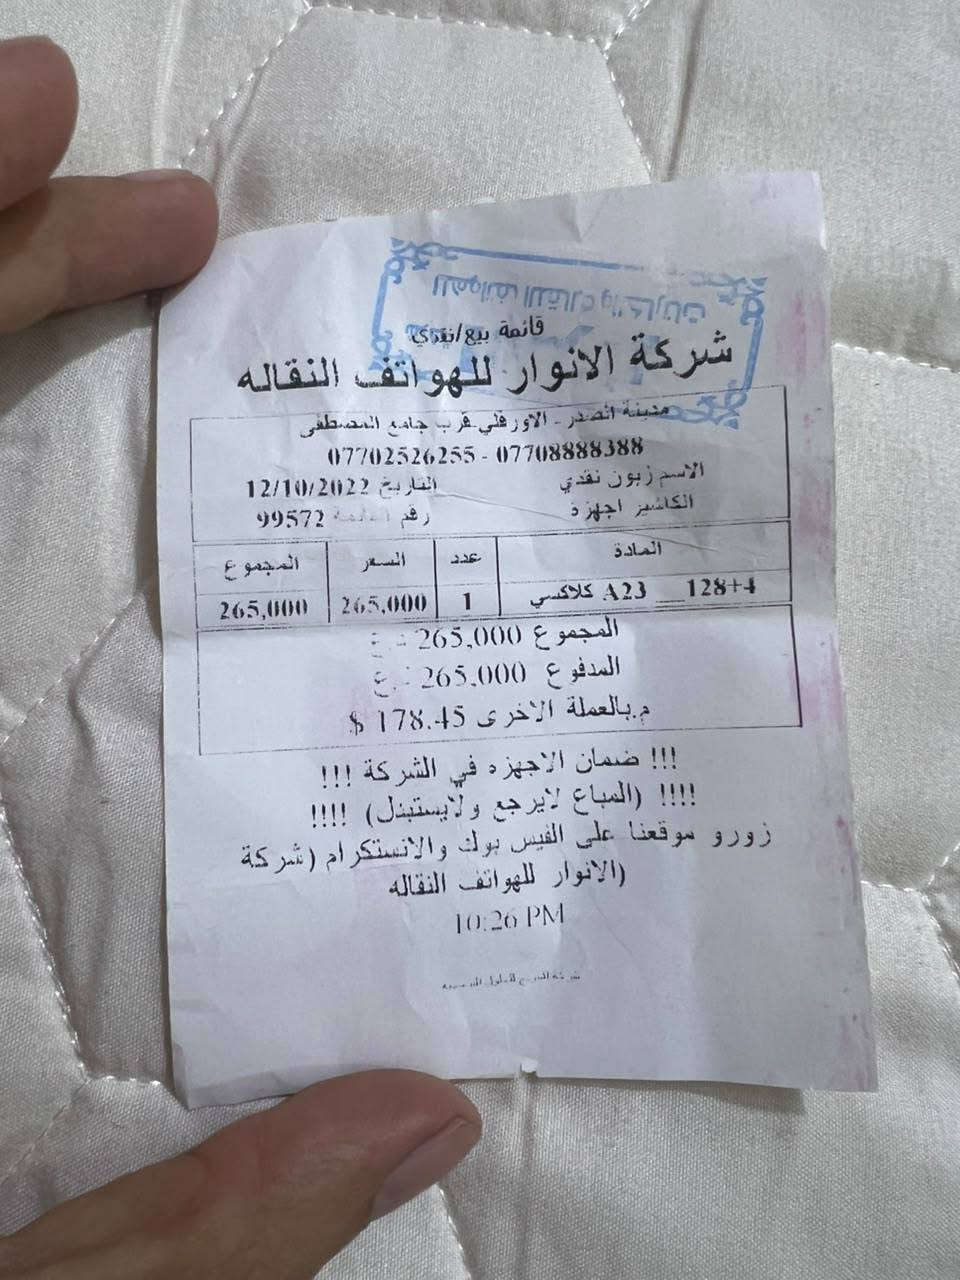 للهواتف النقالة والحاسبات
قائمة بيع/نقدي
شركة الانوار للهواتف النقاله
مدينة الصدر - الاورفلي قرب جامع المصطفى
07702526255 - 07708888388
الاسم زبون نقدي التاريخ 12/10/2022
الكاشير اجهزة رقم القائمة 99572
المادة عدد السعر المجموع
كلاكسي A23 128+4 1 265,000 265,000
المجموع 265,000 د.ع
المدفوع 265,000 د.ع
م.بالعملة الاخرى 178.45 $
!!! ضمان الاجهزه في الشركة !!!
!!!! (المباع لايرجع ولايستبدل) !!!!
زورو موقعنا على الفيس بوك والانستكرام (شركة
الانوار للهواتف النقاله)
10:26 PM